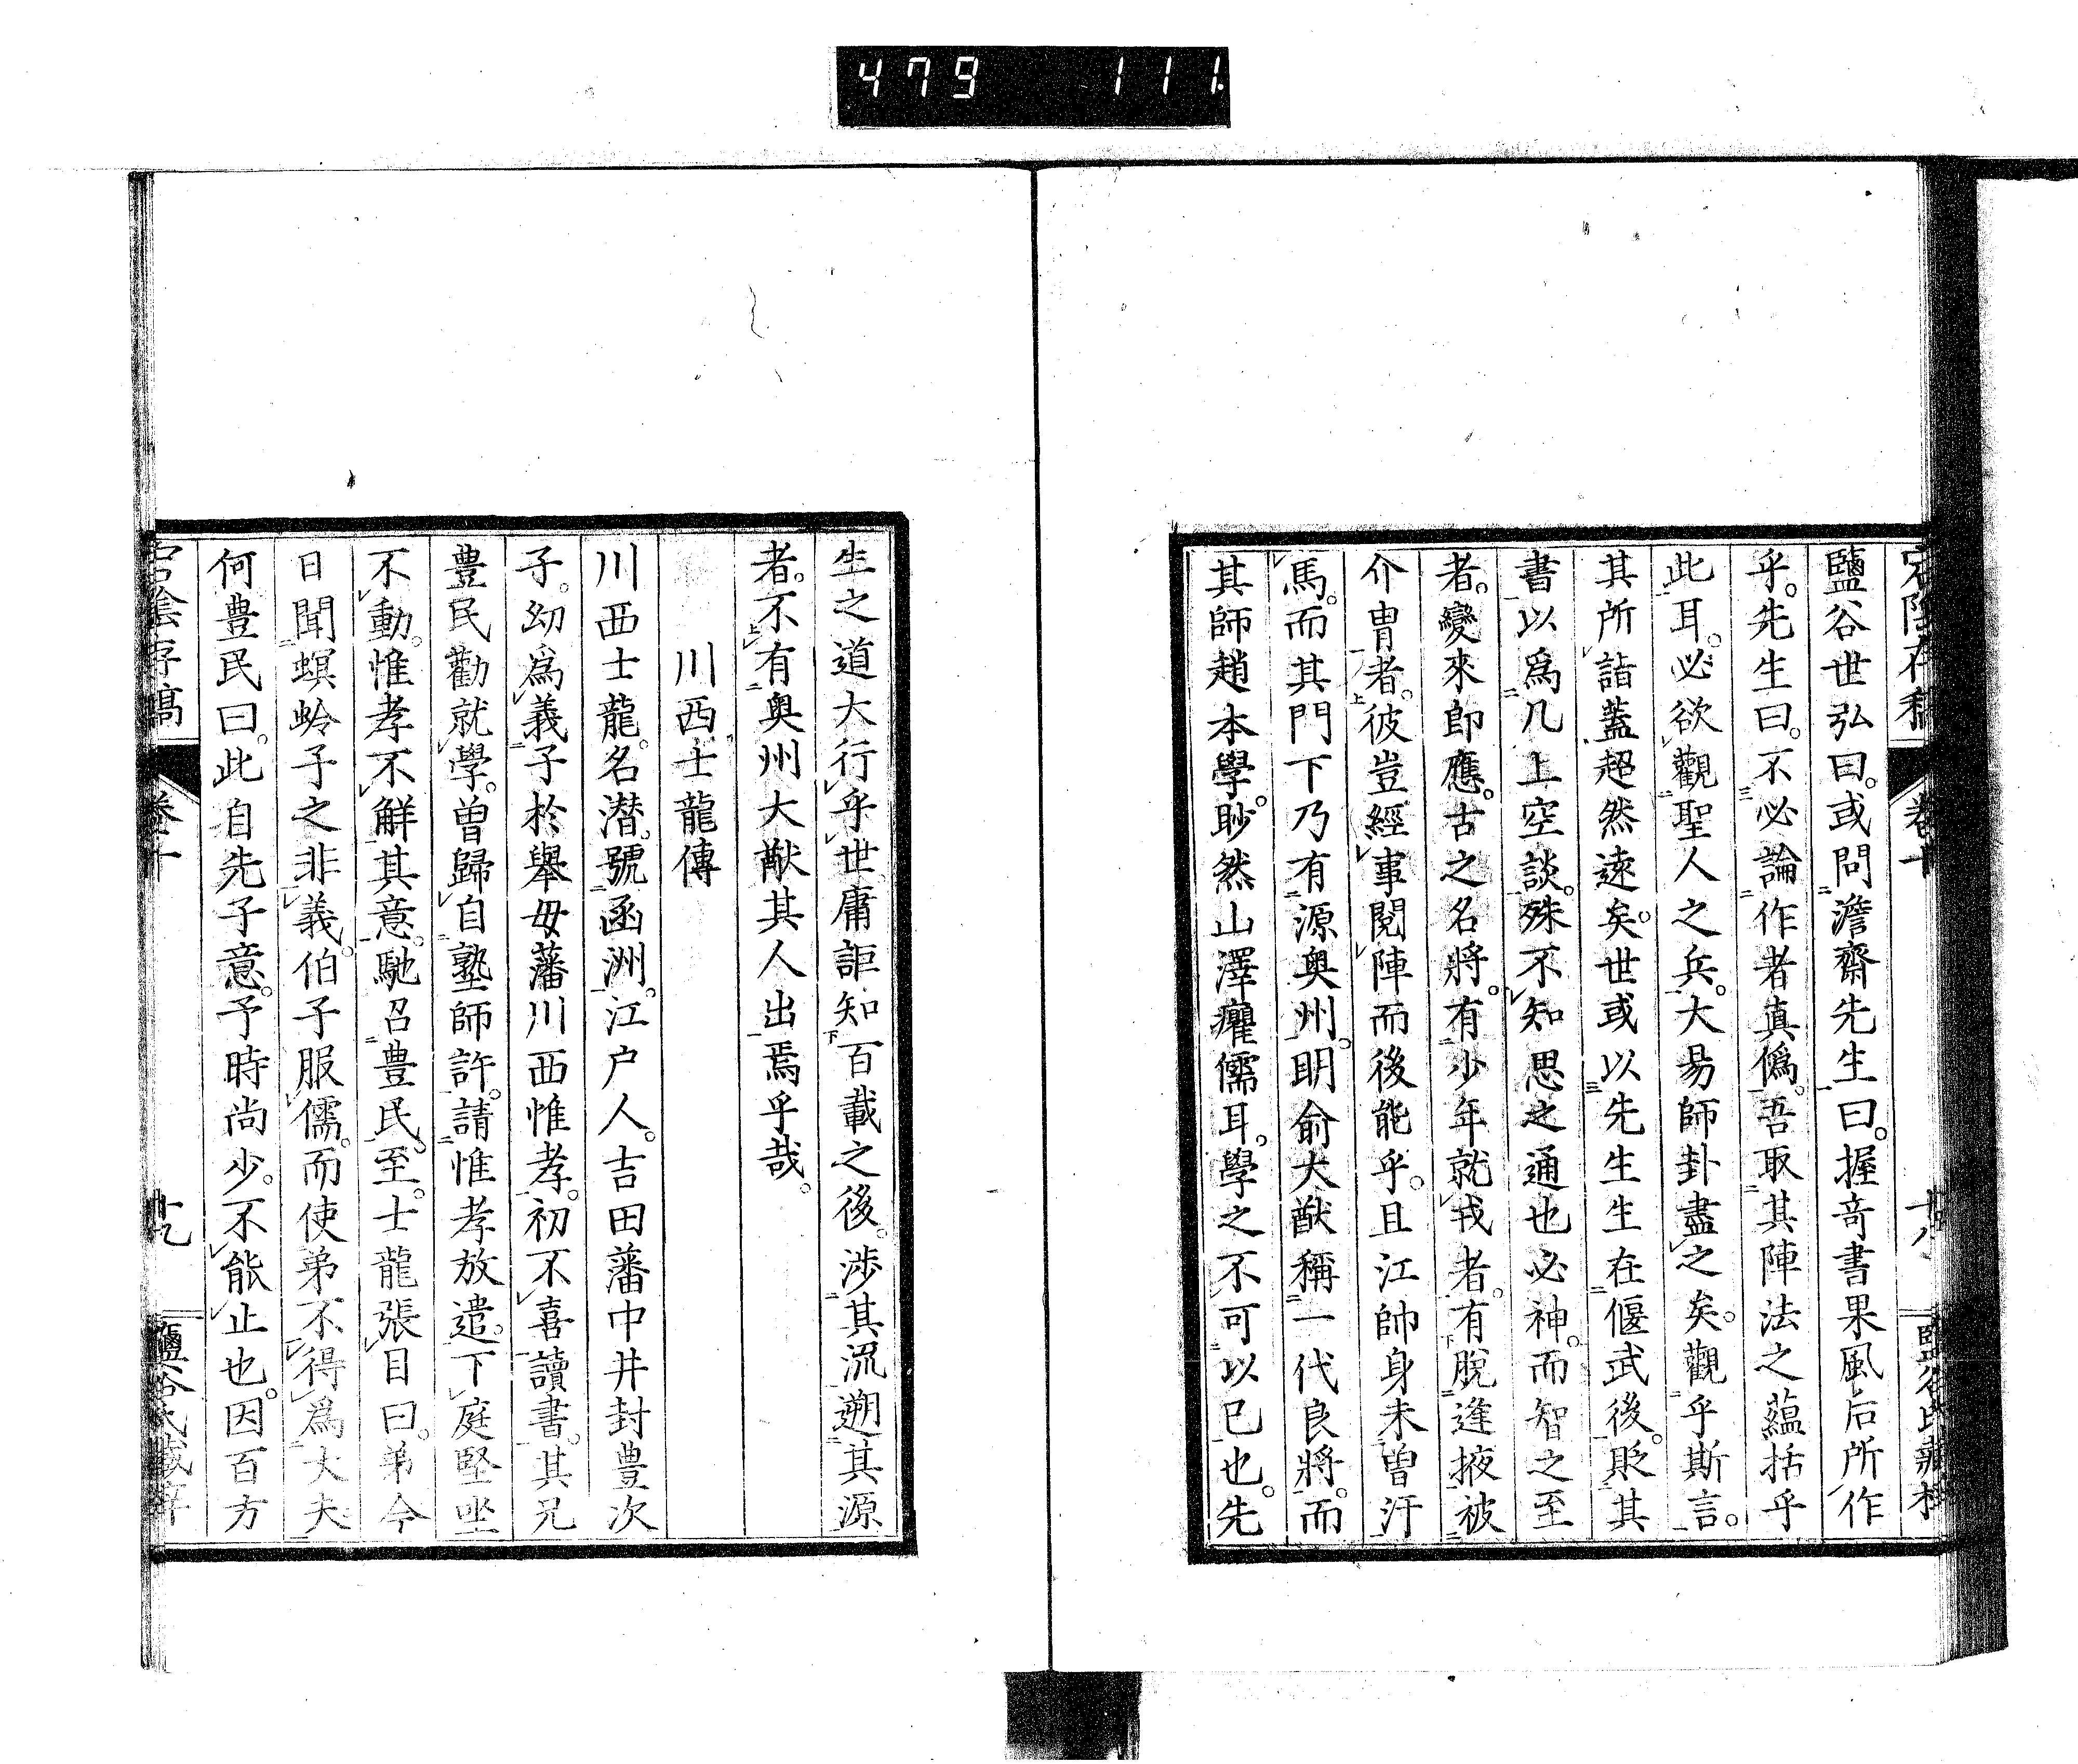 479 111.
宕陰存稿 卷十 十八 鹽谷氏藏梓
鹽谷世弘曰。或問澹齋先生曰。握竒書果風后所作
乎。先生曰。不必論作者眞僞。吾取其陣法之蘊括乎
此耳。必欲觀聖人之兵。大易師卦盡之矣。觀乎斯言。
其所詣蓋超然遠矣。世或以先生生在偃武後。貶其
書以爲几上空談。殊不知思之通也必神。而智之至
者。變來卽應。古之名將。有少年就戎者。有脫逢掖被
介冑者。彼豈經事閱陣而後能乎。且江帥身未曽汗
馬。而其門下乃有源奥州。明俞大猷稱一代良將。而
其師趙本學。眇然山澤癯儒耳。學之不可以已也。先
生之道大行乎世庸詎知百載之後。涉其流遡其源
者。不有奥州大猷其人出焉乎哉。
川西士龍傳
川西士龍。名潜。號函洲。江户人。吉田藩中井封豊次
子。幼爲義子於舉母藩川西惟孝。初不喜讀書。其兄
豊民勸就學。曽歸自塾師許。請惟孝放遣。下庭堅坐
不動。惟孝不解其意。馳召豊民至。士龍張目曰。弟今
日聞螟蛉子之非義。伯子服儒。而使弟不得爲大夫
何豊民曰。此自先子意。予時尚少。不能止也。因百方
宕陰存稿 卷十 十九 鹽谷氏藏梓